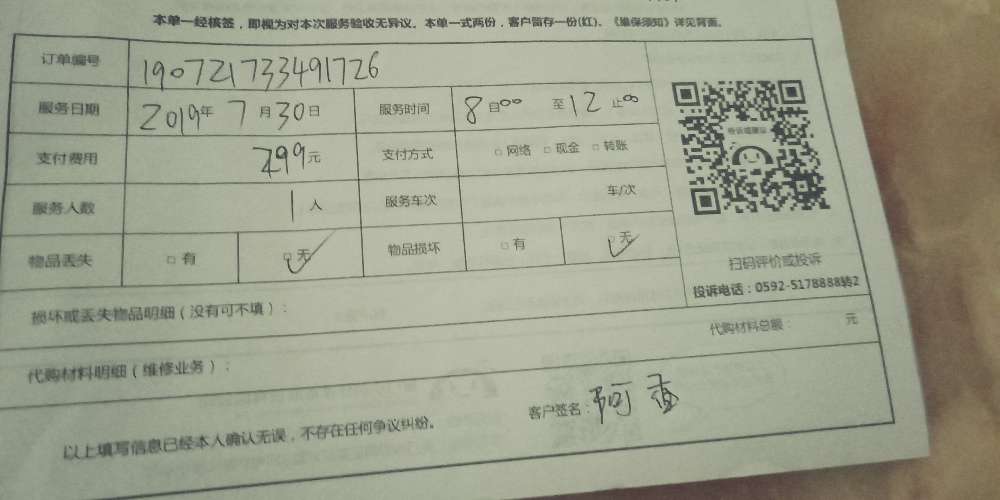 本单一经核签，即视为对本次服务验收无异议。本单一式两份，客户留存一份(红)、《维保须知》详见背面。
订单编号 190721733491726
服务日期 2019年 7月30日 服务时间 8自00 至12止00
支付费用 299元 支付方式 □网络 □现金 □转账
服务人数 1人 服务车次 车/次
物品丢失 □有 □无 物品损坏 □有 □无
投诉或建议
扫码评价或投诉
投诉电话：0592-5178888转2
损坏或丢失物品明细（没有可不填）：
代购材料总额： 元
代购材料明细（维修业务）：
客户签名：阿
以上填写信息已经本人确认无误，不存在任何争议纠纷。